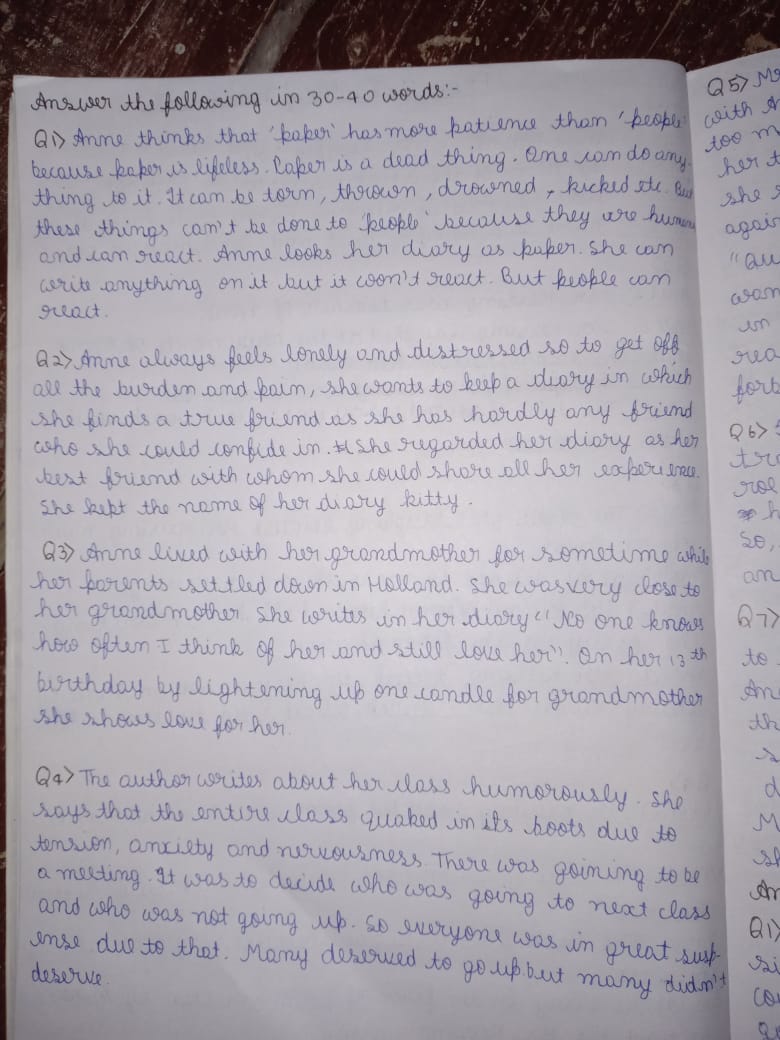 Answer the following in 30-40 words:-
Q1> Anne thinks that 'paper' has more patience than 'people'
because paper is lifeless. Paper is a dead thing. One can do any
thing to it. It can be torn, thrown, drowned, kicked etc. But
these things can't be done to 'people' because they are humans
and can react. Anne looks her diary as paper. She can
write anything on it but it won't react. But people can
react.
Q2> Anne always feels lonely and distressed so to get off
all the burden and pain, she wants to keep a diary in which
she finds a true friend as she has hardly any friend
who she could confide in. She regarded her diary as her
best friend with whom she could share all her experience.
She kept the name of her diary kitty.
Q3> Anne lived with her grandmother for sometime while
her parents settled down in Holland. She was very close to
her grandmother. She writes in her diary "No one knows
how often I think of her and still love her". On her 13th
birthday by lightening up one candle for grandmother
she shows love for her.
Q4> The author writes about her class humorously. She
says that the entire class quaked in its boots due to
tension, anxiety and nervousness. There was goining to be
a meeting. It was to decide who was going to next class
and who was not going up. So everyone was in great susp-
ense due to that. Many deserved to go up but many didn't
deserve.
Q5>
with
too
her
she
again
in
Q6>
So,
an
Q7>
to
Q1>